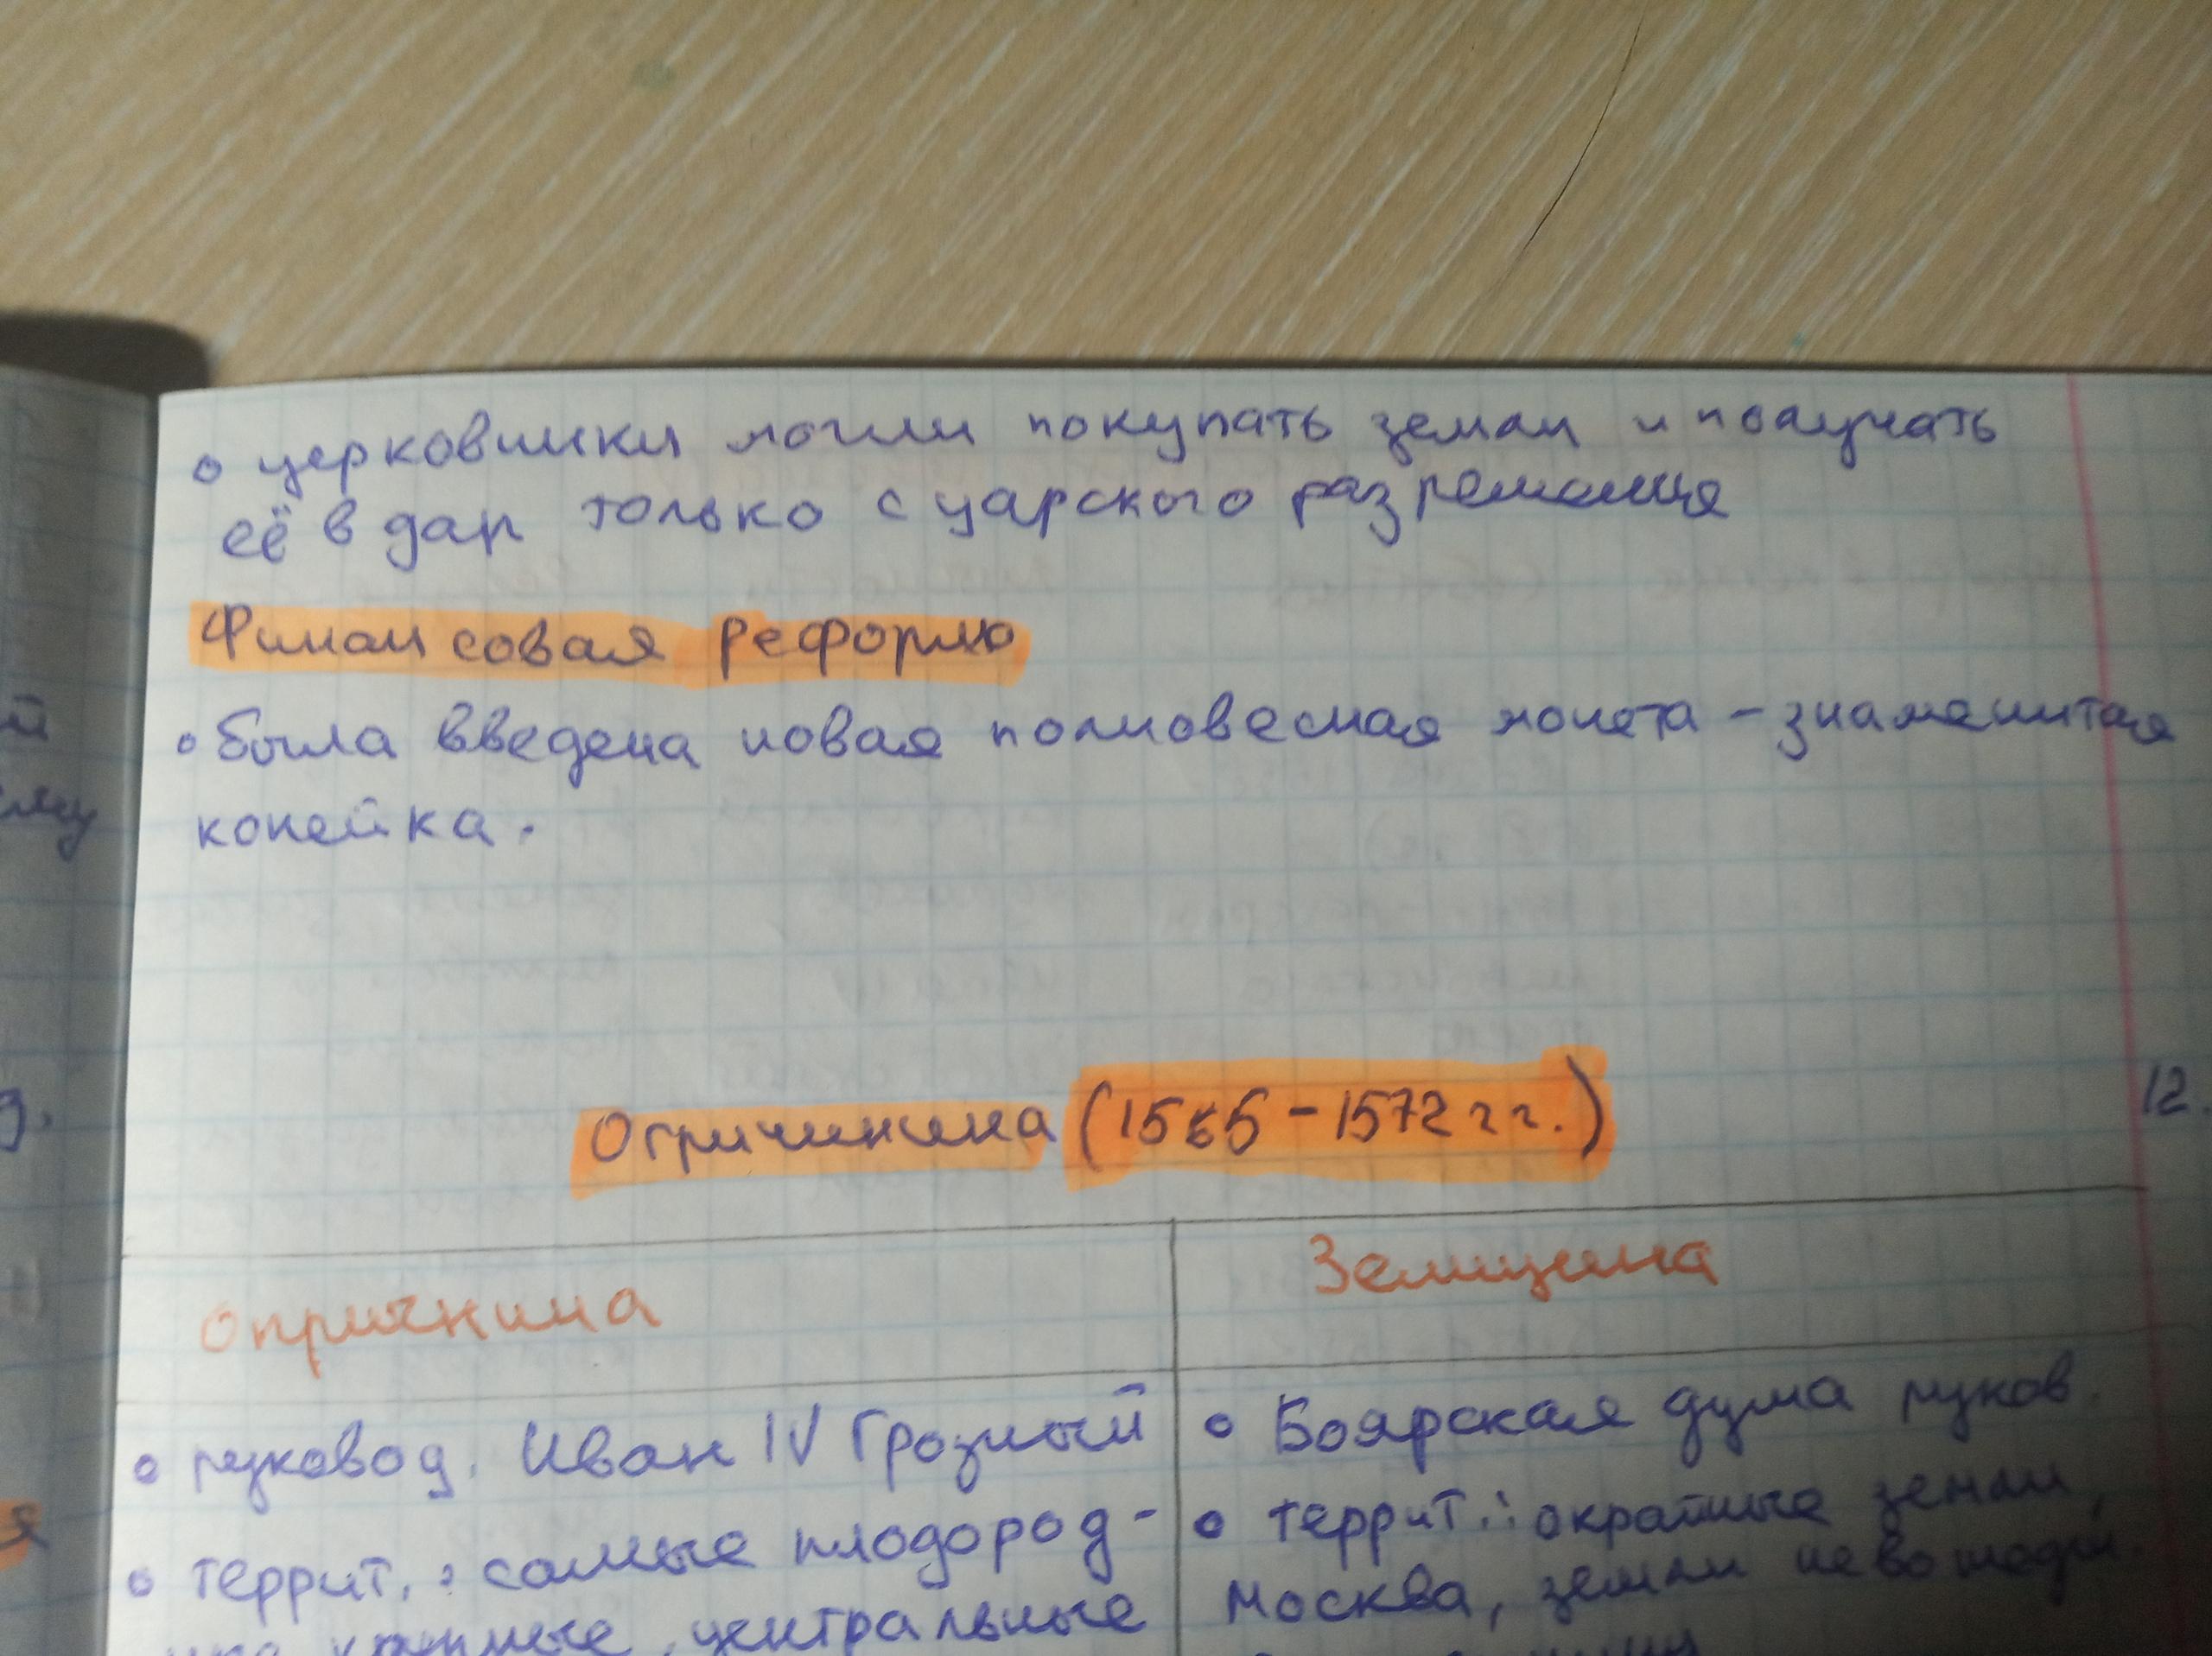 о церковники могли покупать земли и получать
её в дар только с царского разрешения
Финансовая реформа
о была введена новая полновесная монета – знаменитая
копейка.
Опричинина (1565 – 1572 гг.)
12
опричнина
Земщина
о руковод. Иван IV Грозный
о террит. : самые плодород-
крупные, центральные
о Боярская дума руков.
о террит. : окраиные земли,
Москва, земли